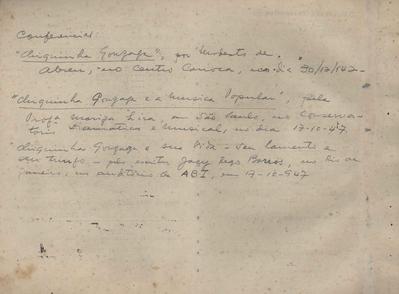 Conferencias:
"Chiquinha Gonzaga", por Umberto de
Abreu, no Centro Carioca, no dia 30/12/942-
"Chiquinha Gonzaga e a Musica Popular", pela
Profa Mariza Lira, em São Paulo, no Conserva-
torio Dramatico e Musical, no dia 17-10-47.
Chiquinha Gonzaga e sua Vida - seu
seu tempo - pelo escritor Jacy Rego Barros, no Rio de
Janeiro, no auditorio da ABI, em 17-10-947